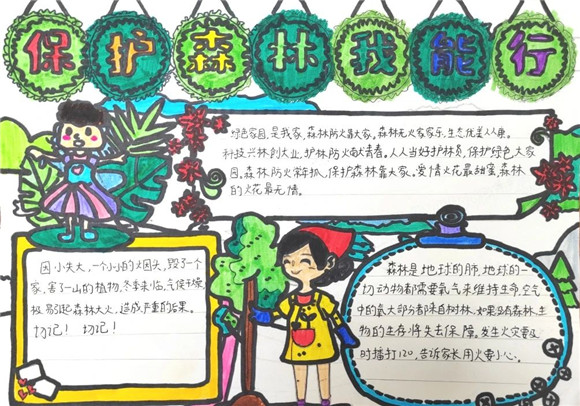 保护森林我能行
绿色家园,是我家,森林防火靠大家,森林无火家家乐,生态优美人人康。
科技兴林创大业,护林防火献青春。人人当好护林员,保护绿色大家
园,森林防火常年抓,保护森林靠大家。爱情火花最甜蜜,森林
的火花最无情。
因小失大,一个小小的烟头,毁了一个
家,害了一山的植物,冬季来临,气候干燥,
极易引起森林火火,造成严重的后果。
切记! 切记!
森林是地球的肺,地球的一
切动物都需要氧气来维持生命,空气
中的氧大部分都来自树林,如果没有森林,生
物的生存将失去保障。发生火灾要及
时播打120,告诉家长用火要小心。